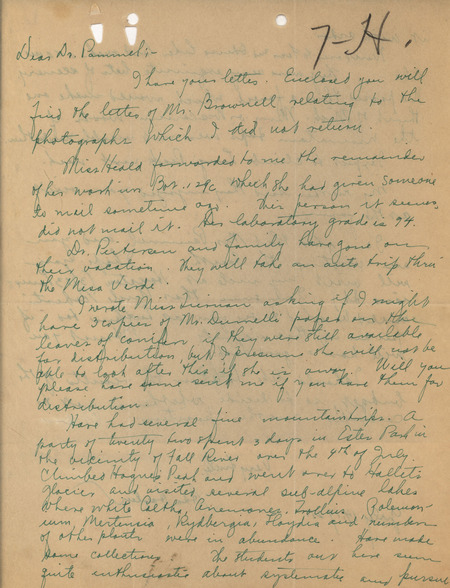 7-H.
Dear Dr. Pammel:-
I have your letter. Enclosed you will
find the letter of Mr. Brownell relating to the
photographs which I did not return.
Miss Heald forwarded to me the remainder
of her work in Bot. 129c which she had given someone
to mail sometime ago. This person it seems
did not mail it. Her laboratory grade is 94.
Dr. and family have gone on
their vacation. They will take an auto trip thru
the Mesa Verde.
I wrote Miss asking if I might
have 3 copies of Mr. paper on the
leaves of conifers if they were still available
for distribution, but I presume she will not be
able to look after this if she is away. Will you
please have some sent me if you have them for
distribution.
Have had several fine mountain trips. A
party of twenty two spent 3 days in Estes Park in
the vicinity of Fall River over the 4th of July.
Climbed Hagues Peak and went over to Hallets
glacier and visited several sub-alpine lakes
where white Caltha, Anemones, Trollius, Polemon-
ium, Mertensia, Rydbergia, Lloydia and numbers
of other plants were in abundance. Have made
some collections. The students out here seem
quite enthusiastic about systematic and pursue